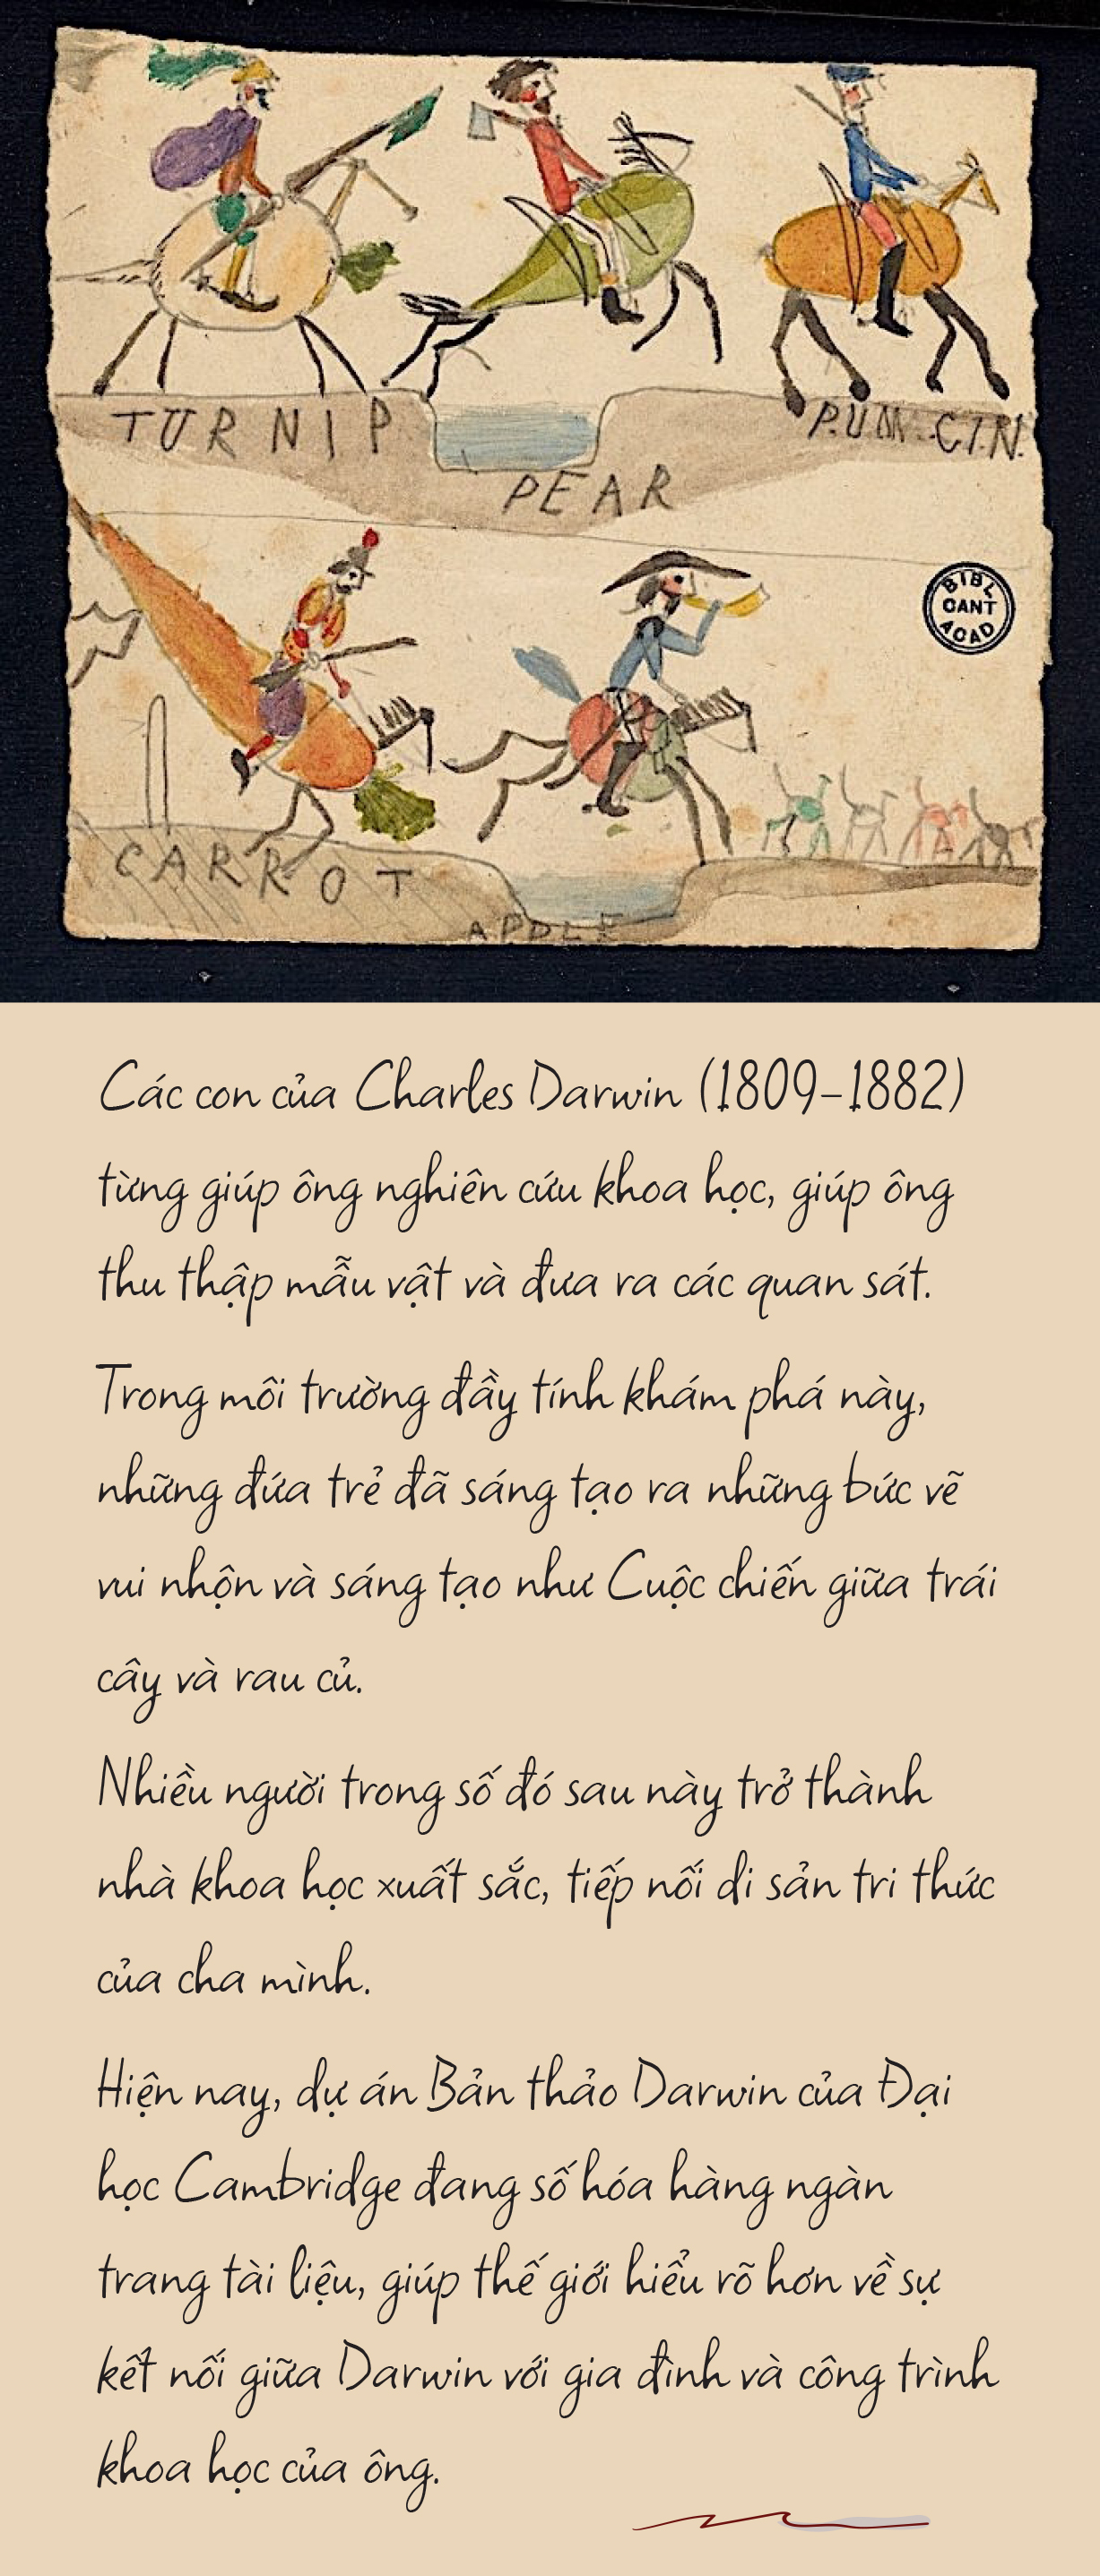 TURNIP
PEAR
P.UM.C.I.N.
BIBL
CANT
ACAD
CARROT
APPLE
Các con của Charles Darwin (1809–1882)
từng giúp ông nghiên cứu khoa học, giúp ông
thu thập mẫu vật và đưa ra các quan sát.
Trong môi trường đầy tính khám phá này,
những đứa trẻ đã sáng tạo ra những bức vẽ
vui nhộn và sáng tạo như Cuộc chiến giữa trái
cây và rau củ.
Nhiều người trong số đó sau này trở thành
nhà khoa học xuất sắc, tiếp nối di sản tri thức
của cha mình.
Hiện nay, dự án Bản thảo Darwin của Đại
học Cambridge đang số hóa hàng ngàn
trang tài liệu, giúp thế giới hiểu rõ hơn về sự
kết nối giữa Darwin với gia đình và công trình
khoa học của ông.